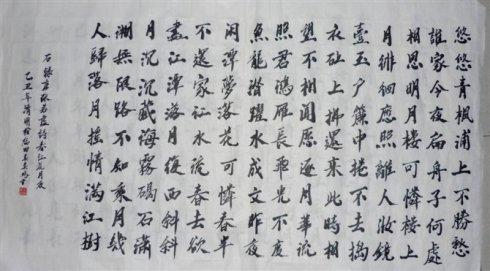 悠悠青楓浦上不勝愁
誰家今夜扁舟子何處
相思明月樓可憐樓上
月徘徊應照離人妝鏡
臺玉户簾中捲不去搗
衣砧上拂還來此時相
望不相聞願逐月華流
照君鴻雁長飛光不度
魚龍潛躍水成文昨夜
閑潭夢落花可憐春半
不還家江水流春去欲
盡江潭落月復西斜斜
月沉沉藏海霧碣石瀟
湘無限路不知乘月幾
人歸落月搖情滿江樹
右錄唐張若虛詩春江花月夜
乙丑年清明